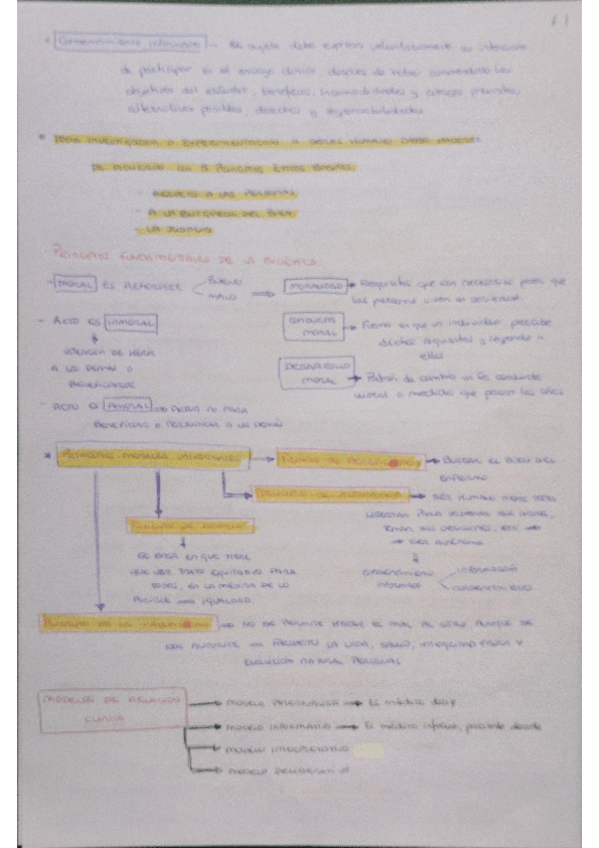 Consentimiento informado → El sujeto debe expresar voluntariamente su intención
de participar en el ensayo clínico, después de haber comprendido los
objetivos del estudio, beneficios, incomodidades y riesgos previstos,
alternativas posibles, derechos y responsabilidades.
* TODA INVESTIGACIÓN O EXPERIMENTACIÓN A SERES HUMANOS DEBE HACERSE
DE ACUERDO CON 3 PRINCIPIOS ÉTICOS BÁSICOS
- RESPETO A LAS PERSONAS
- A LA BÚSQUEDA DEL BIEN
- LA JUSTICIA
PRINCIPIOS FUNDAMENTALES DE LA BIOÉTICA
- MORAL ES
MALO
MORALIDAD → Requisitos que son necesarios para que
las personas vivan en sociedad
- ACTO ES INMORAL
CONDUCTA MORAL → Forma en que un individuo percibe
dichos requisitos y responde a
ellos
A LA DEMÁS O
BENEFICIARSE
DESARROLLO MORAL → Patrón de cambio en la conducta
moral a medida que pasan los años
- ACTO ES AMORAL
BENEFICIO O A LOS DEMÁS
* PRINCIPIOS MORALES UNIVERSALES → PRINCIPIO DE BENEFICENCIA → BUSCAR EL BIEN DEL
ENFERMO
→ PRINCIPIO DE AUTONOMÍA → SER HUMANO TIENE TOTAL
LIBERTAD PARA
TOMAR SUS DECISIONES, ETC →
→ SER AUTÓNOMO
PRINCIPIO DE JUSTICIA
SE BASA EN QUE TIENE
QUE VER TRATO EQUITATIVO PARA
TODOS, EN LA MEDIDA DE LO
POSIBLE → IGUALDAD.
CONSENTIMIENTO INFORMADO
INFORMACIÓN
CONSENTIMIENTO
PRINCIPIO DE LA → NO SE PERMITE HACER EL MAL AL OTRO, AUNQUE SE
NOS AUTORICE → RESPETO LA VIDA, SALUD, INTEGRIDAD FÍSICA Y
EVOLUCIÓN NATURAL PERSONAL
MODELOS DE RELACIÓN CLÍNICA
→ MODELO PATERNALISTA → El médico
→ MODELO INFORMATIVO → El médico informa, paciente decide
→ MODELO INTERPRETATIVO
→ MODELO DELIBERATIVO